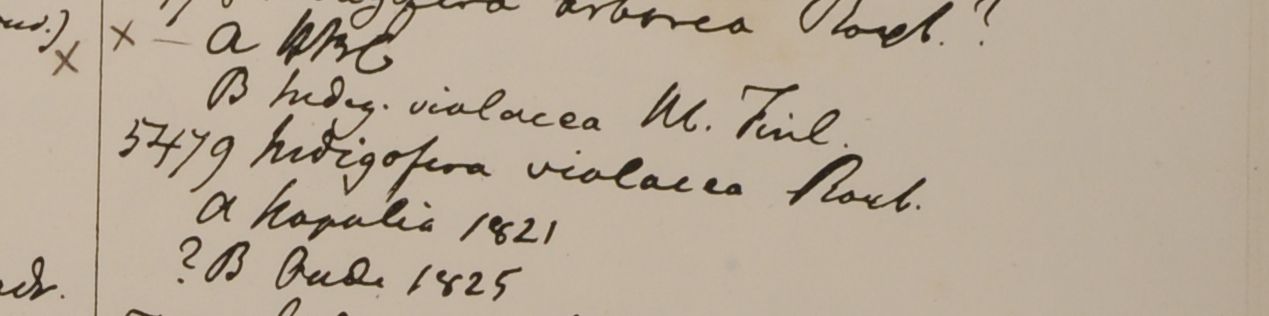 arborea Roxb.?
× — a HBC
B Indig. violacea M. Finl.
5479 Indigofera violacea Roxb.
a Napalia 1821
? B Oude 1825